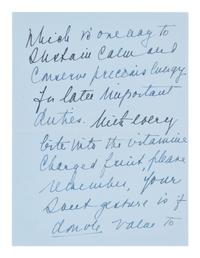 Which is one way to
sustain calm and
conserve precious energy
for later important
duties. With every
bite into the vitamine
charged fruit, please
remember, your
sweet gesture is of
double value to